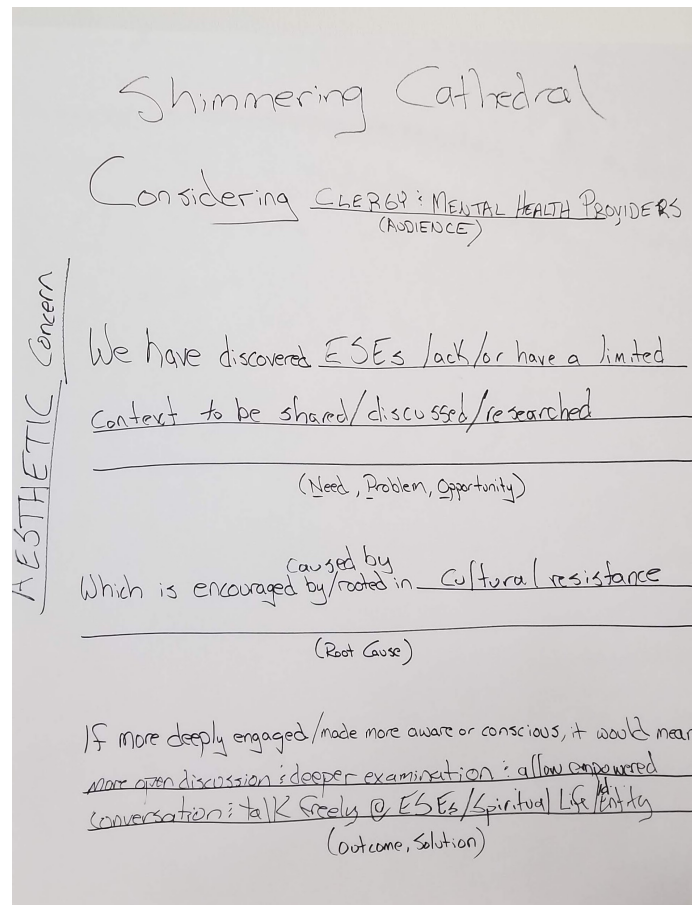 Shimmering Cathedral
Considering CLERGY & MENTAL HEALTH PROVIDERS
(AUDIENCE)
AESTHETIC Concern
We have discovered ESEs lack/or have a limited
context to be shared/discussed/researched
(Need, Problem, Opportunity)
caused by
Which is encouraged by/rooted in cultural resistance
(Root Cause)
If more deeply engaged/made more aware or conscious, it would mean
more open discussion & deeper examination & allow empowered
conversation & talk freely @ ESEs/Spiritual Life/Identity
(Outcome, Solution)